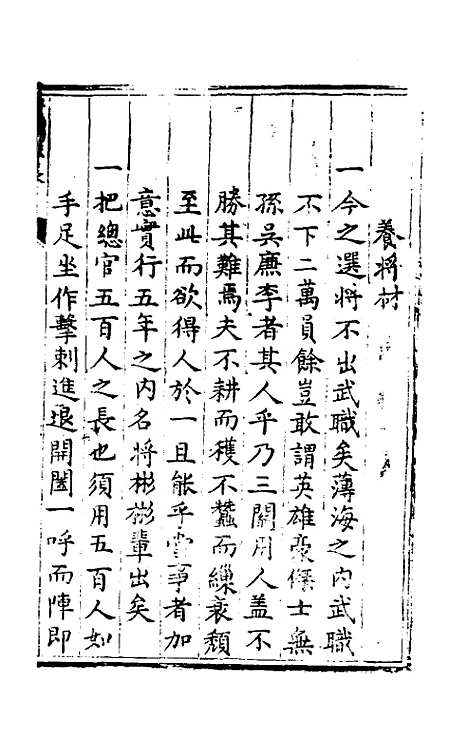 養將材
一今之選將不出武職矣薄海之内武職
不下二萬員餘豈敢謂英雄豪傑士無
孫吳廉李者其人乎乃三關用人盖不
勝其難焉夫不耕而穫不蠶而繅衰頹
至此而欲得人於一旦能乎當事者加
意實行五年之内名將彬彬輩出矣
一把總官五百人之長也須用五百人如
手足坐作擊刺進退開闔一呼而陣即